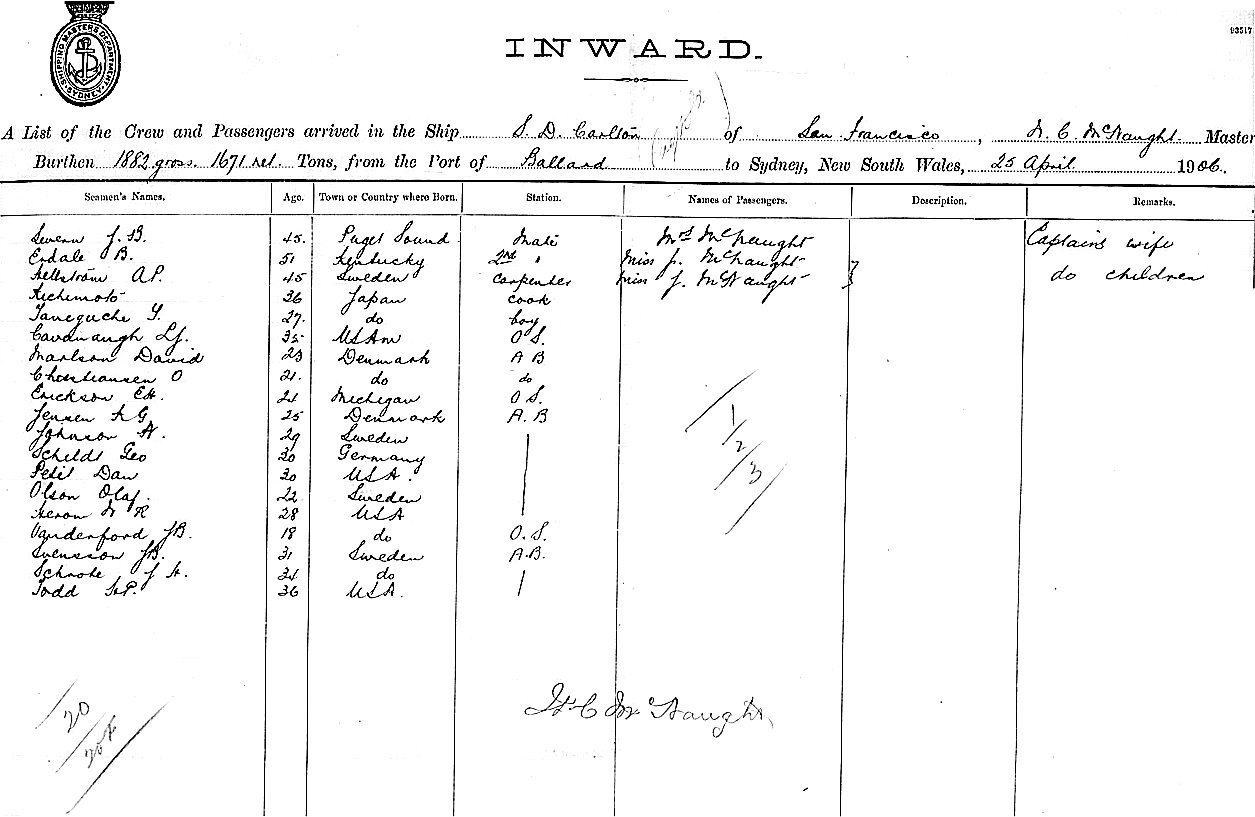 SHIPPING MASTERS DEPARTMENT SYDNEY
93517
INWARD.
A List of the Crew and Passengers arrived in the Ship S. D. Carlton of San Francisco, C. McNaught Master
Burthen 1882 gross. 1671 net. Tons, from the Port of Ballard to Sydney, New South Wales, 25 April 1906.
Seamen's Names. Age. Town or Country where Born. Station. Names of Passengers. Description. Remarks.
J. B. 45. Puget Sound Mate Mrs McNaught Captains wife
Erdale B. 51 Kentucky 2nd " Miss J. McNaught
Hellstrom A.P. 45 Sweden Carpenter Miss J. McNaught do children
36 Japan cook
Taneguche Y. 27. do boy
Cavanaugh 35 USAm O S.
Marlson David 23 Denmark A B
Christiansen O 21. do do
Erickson EH. 21 Michigan O S.
Jensen A G 25 Denmark A. B
Johnson A. 29 Sweden
Schildt Geo 30 Germany
Petit Dan 30 USA.
Olson Olaf. 22 Sweden
28 USA
Vanderford JB. 18 do O. S.
Svensson JB. 31 Sweden A.B.
J A. 31 do
Todd 36 USA.
1/2/3
20
C McNaught